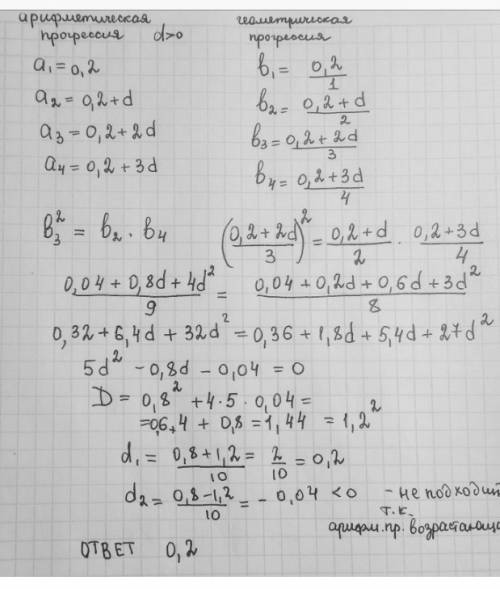 арифметическая прогрессия d>0
геометрическая прогрессия
a₁ = 0,2
b₁ = 0,2/1
a₂ = 0,2+d
b₂ = (0,2+d)/2
a₃ = 0,2+2d
b₃ = (0,2+2d)/3
a₄ = 0,2+3d
b₄ = (0,2+3d)/4
b₃² = b₂ · b₄ ((0,2+2d)/3)² = (0,2+d)/2 · (0,2+3d)/4
(0,04+0,8d+4d²)/9 = (0,04+0,2d+0,6d+3d²)/8
0,32+6,4d+32d² = 0,36+1,8d+5,4d+27d²
5d² - 0,8d - 0,04 = 0
D = 0,8² + 4·5·0,04 =
=0,64 + 0,8 = 1,44 = 1,2²
d₁ = (0,8+1,2)/10 = 2/10 = 0,2
d₂ = (0,8-1,2)/10 = - 0,04 <0 - не подходит
т.к.
арифм.пр. возрастающ
ОТВЕТ 0,2